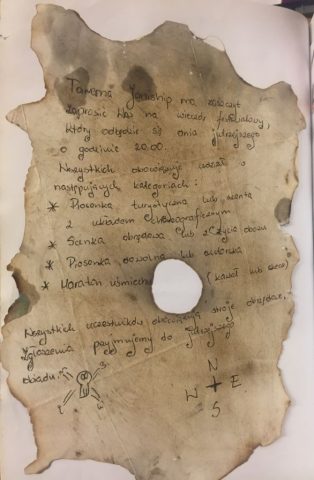 Tawerna Jamship ma zaszczyt
zaprosić Was na wieczór festiwalowy,
który odbędzie się dnia jutrzejszego
o godzinie 20.00.
Wszystkich obowiązuje udział w
następujących kategoriach:
* Piosenka turystyczna lub szanta
z układem choreograficznym
* Scenka obrzędowa lub z życia obozu
* Piosenka dowolna lub autorska
* Maraton uśmiechu (kawał lub scena)
Wszystkich uczestników obowiązują stroje obrzędowe.
Zgłoszenia przyjmujemy do jutrzejszego
obiadu.
N
W E
S